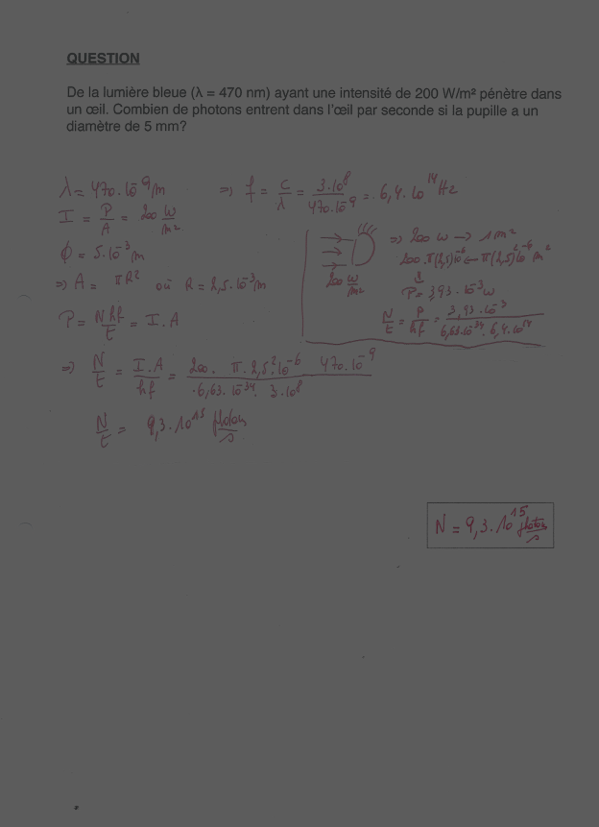 QUESTION
De la lumière bleue (λ = 470 nm) ayant une intensité de 200 W/m² pénètre dans
un œil. Combien de photons entrent dans l'œil par seconde si la pupille a un
diamètre de 5 mm?
λ = 470.10⁻⁹ m ⇒ f = c/λ = 3.10⁸/470.10⁻⁹ = 6,4.10¹⁴ Hz
I = P/A = 200 W/m²
ϕ = 5.10⁻³ m
⇒ A = πR² où R = 2,5.10⁻³ m
P = Nhf/t = I.A
⇒ 200 W → 1 m²
200.π(2,5)²10⁻⁶ ← π(2,5)²10⁻⁶ m²
200 W/m²
P = 3,93.10⁻³ W
N/t = P/hf = 3,93.10⁻³/6,63.10⁻³⁴.6,4.10¹⁴
⇒ N/t = I.A/hf = 200.π.2,5².10⁻⁶ 470.10⁻⁹/6,63.10⁻³⁴.3.10⁸
N/t = 9,3.10¹⁵ photons/s
N = 9,3.10¹⁵ photons/s